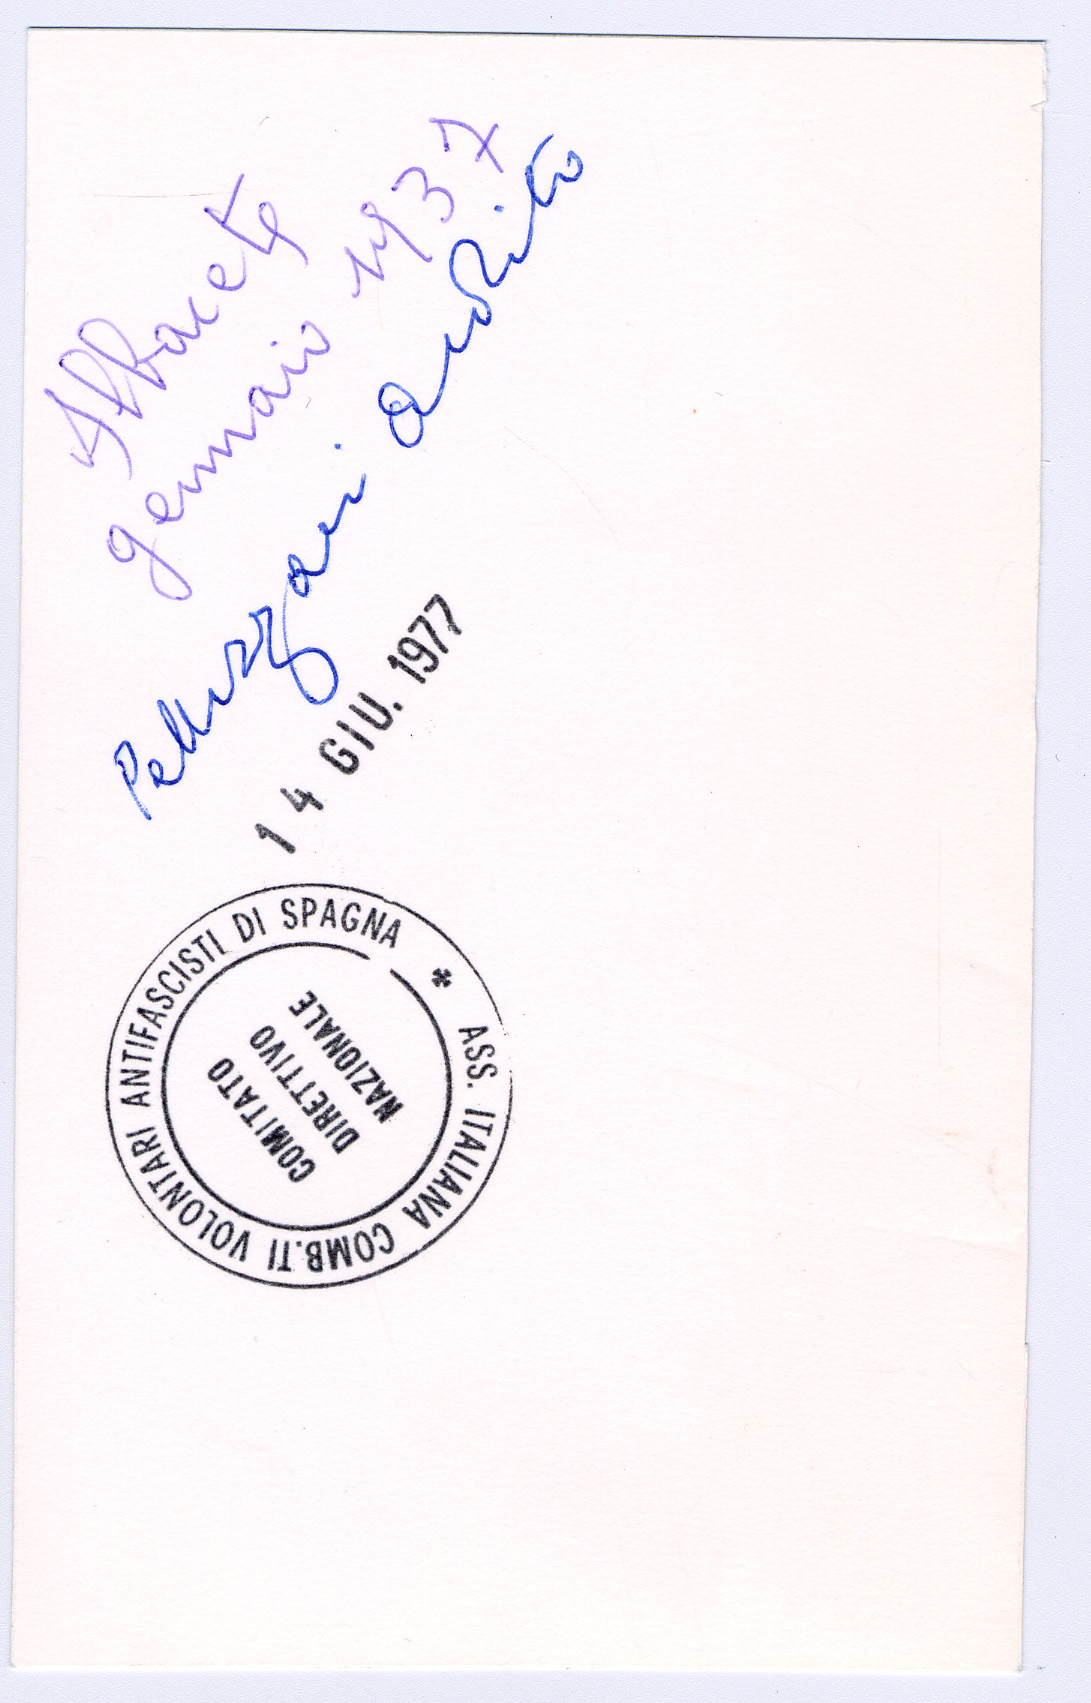 Albacete
gennaio 1937
Pellizzari
14 GIU. 1977
ASS. ITALIANA COMB.TI VOLONTARI ANTIFASCISTI DI SPAGNA *
COMITATO
DIRETTIVO
NAZIONALE